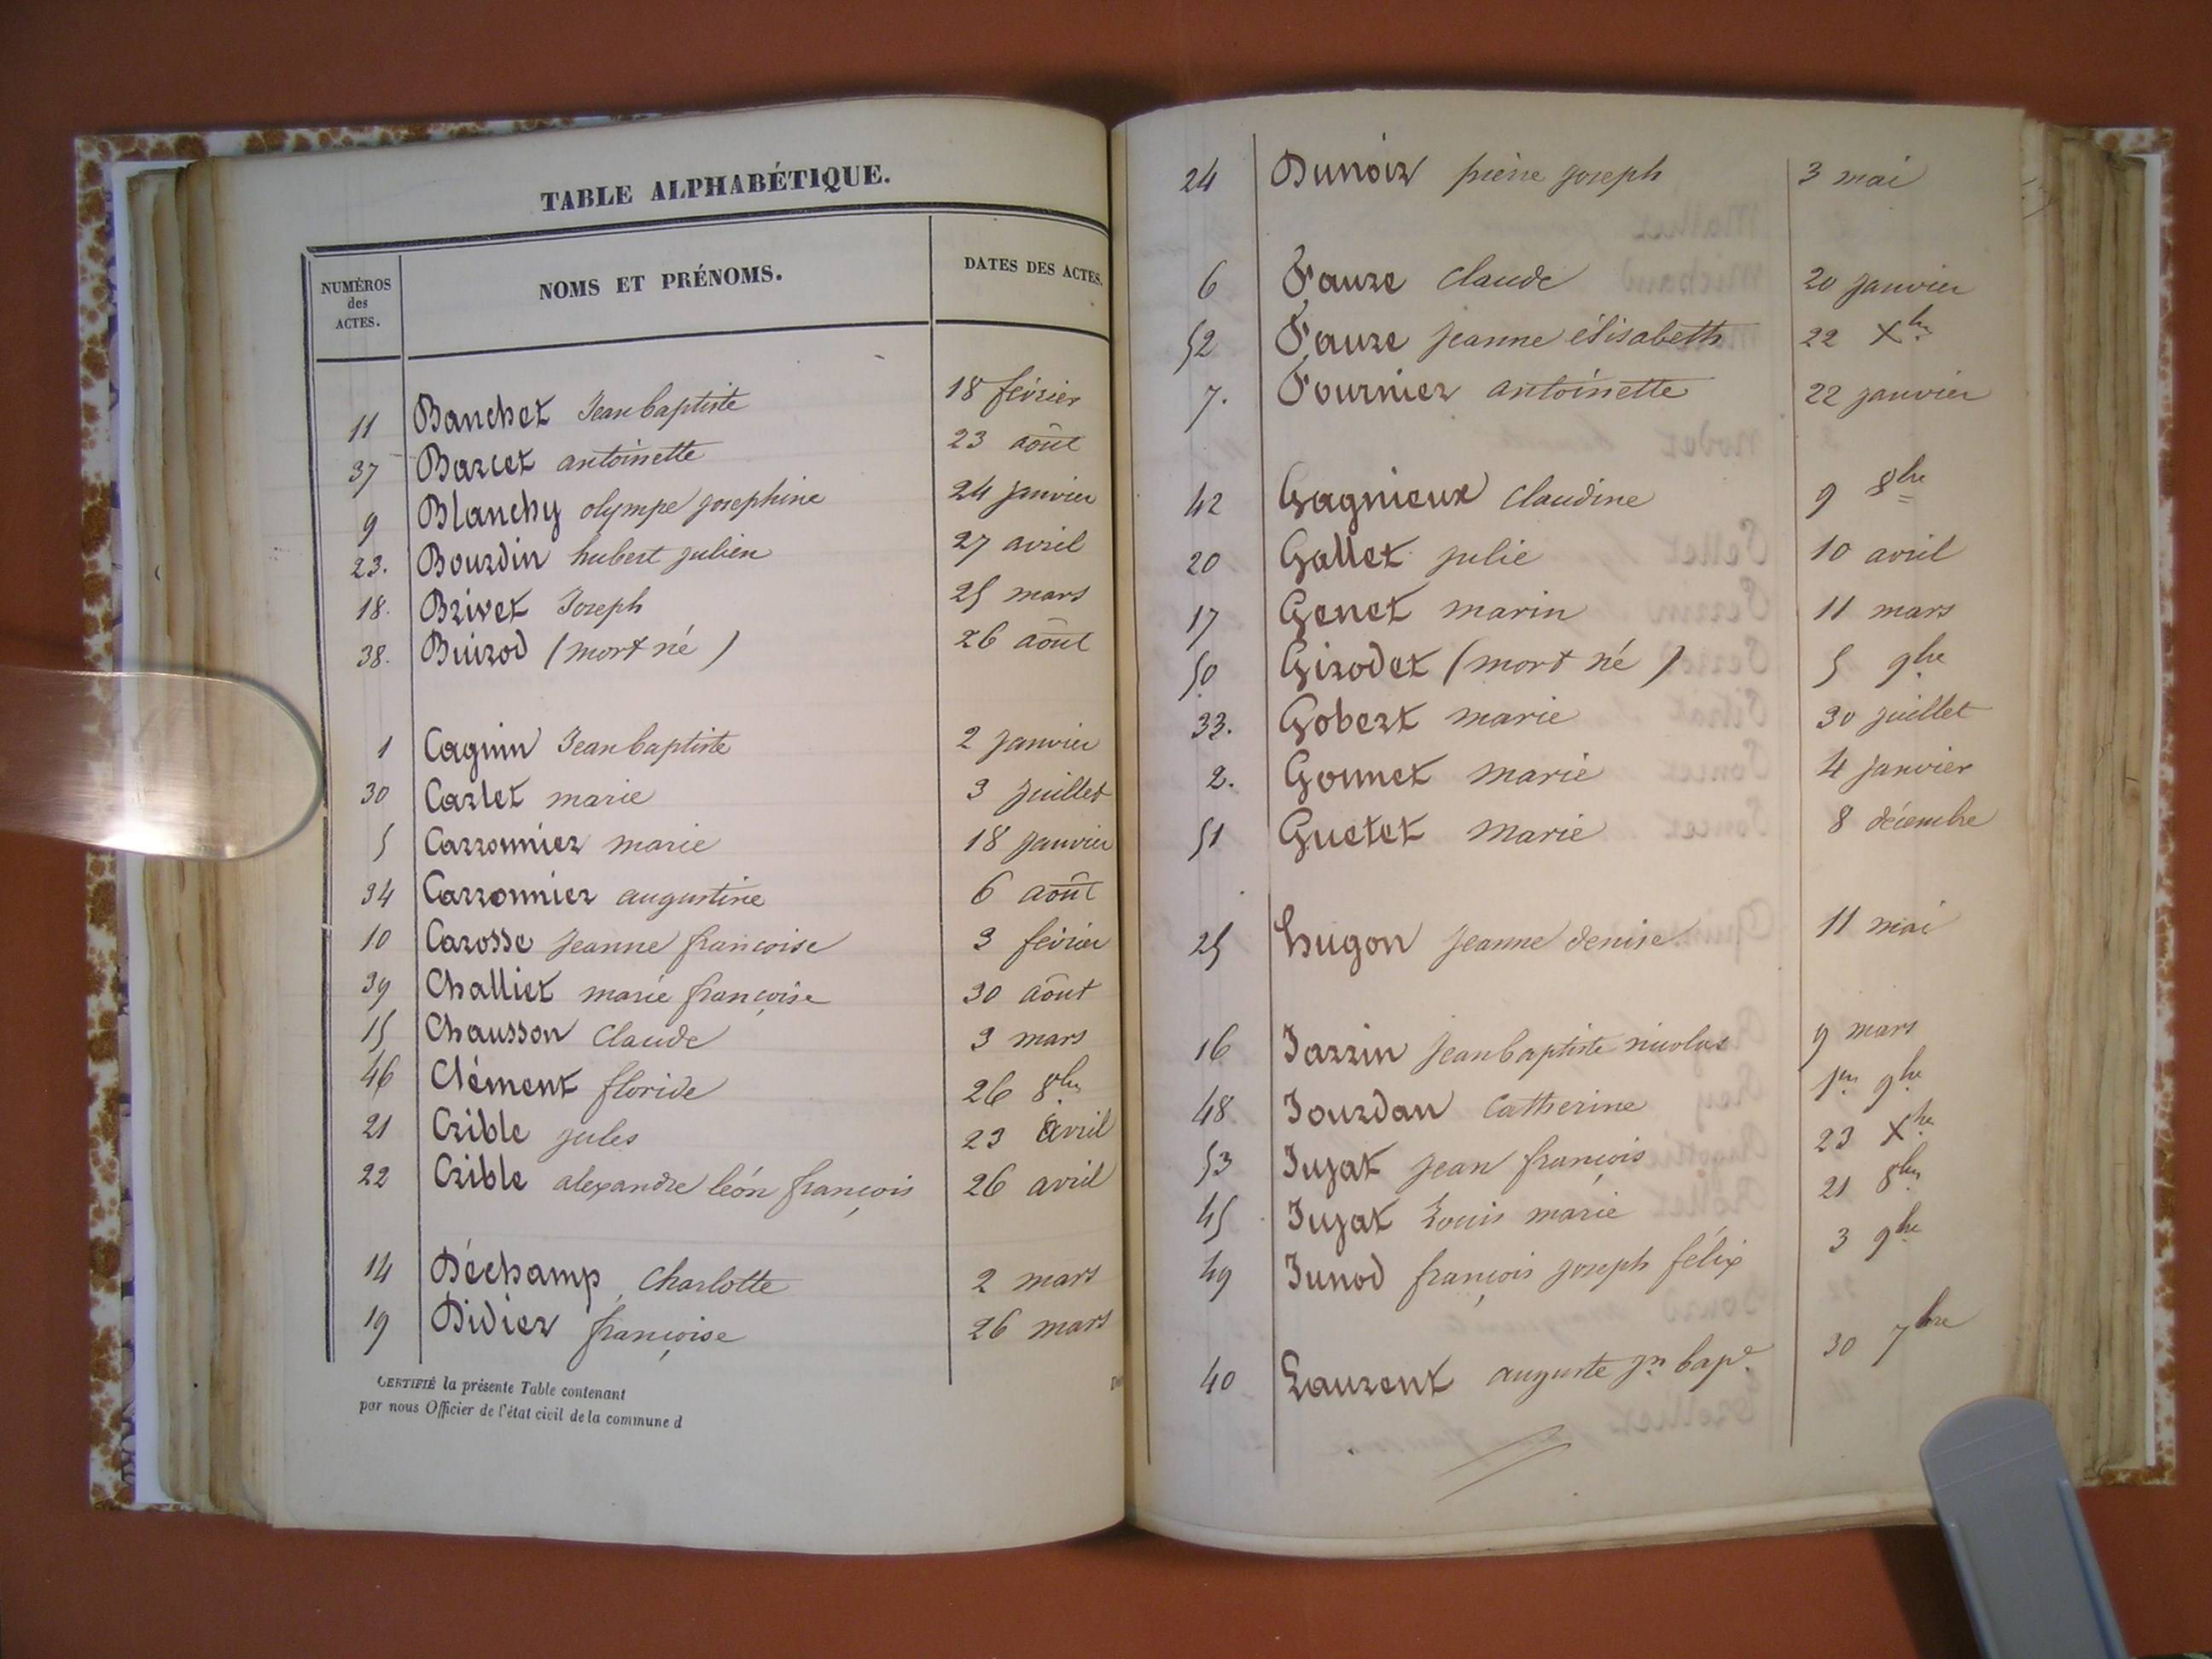 TABLE ALPHABÉTIQUE.
NUMÉROS des ACTES.
NOMS ET PRÉNOMS.
DATES DES ACTES.
11 Banchet Jean baptiste 18 février
37 Barcet antoinette 23 août
9 Blanchy olympe josephine 24 janvier
23. Bourdin hubert julien 27 avril
18. Brivet Joseph 25 mars
38. Buirod (mort né) 26 août
1 Cagnin Jean baptiste 2 janvier
30 Carlet marie 3 juillet
5 Carronnier marie 18 janvier
34 Carronnier augustine 6 août
10 Carosse jeanne francoise 3 février
39 Challiet marie françoise 30 août
15 Chausson Claude 3 mars
46 Clément floride 26 8bre
21 Crible jules 23 avril
22 Crible alexandre léon françois 26 avril
14 Déchamp, Charlotte 2 mars
19 Didier françoise 26 mars
CERTIFIÉ la présente Table contenant
par nous Officier de l'état civil de la commune d
24 Dunoir pierre joseph 3 mai
6 Faure claude 20 janvier
52 Faure jeanne élisabeth 22 Xbre
7. Fournier antoinette 22 janvier
42 Gagnieux claudine 9 8bre
20 Gallet julie 10 avril
17 Genet marin 11 mars
50 Girodet (mort né) 5 9bre
33. Gobert marie 30 juillet
2. Gonnet marie 4 janvier
51 Guetet marie 8 décembre
25 hugon jeanne denise 11 mai
16 Jarrin jean baptiste nicolas 9 mars
48. Jourdan Catherine 1er 9bre
53 Jujat jean françois 23 Xbre
45 Jujat Louis marie 21 8bre
49 Junod françois joseph félix 3 9bre
40 Laurent auguste jn bapte. 30 7bre